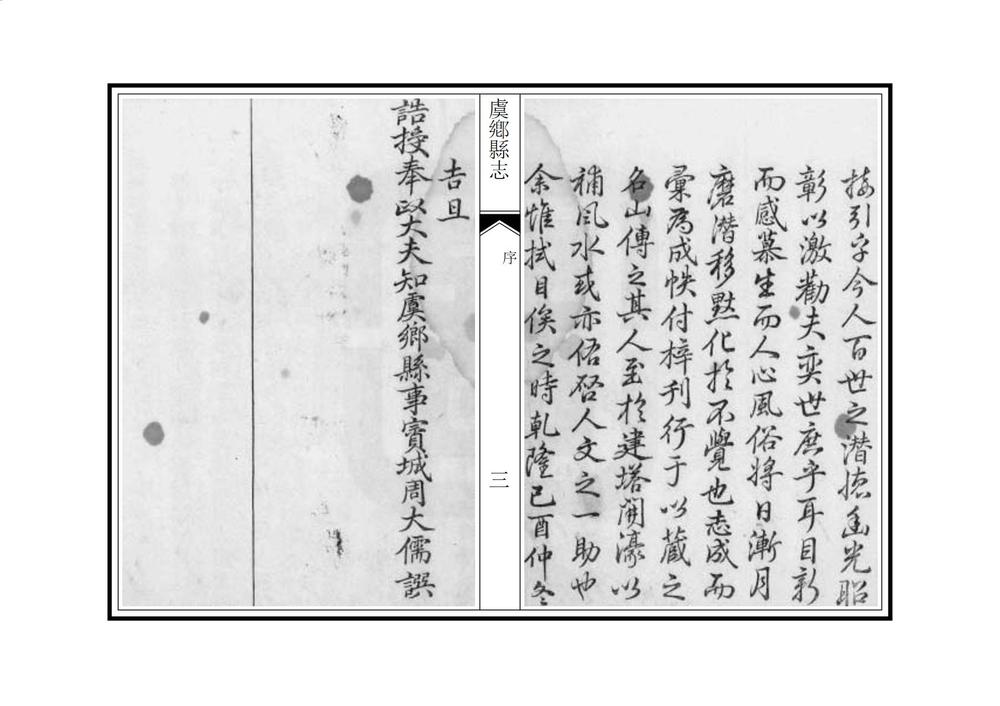 接引字今人百世之潛德幽光昭
彰以激勸夫奕世庶乎耳目新
而感慕生而人心風俗將日漸月
磨潛移默化扵不覺也志成而
彙為成帙付梓刋行于以藏之
名山傳之其人至扵建塔開濠以
補風水或亦佑啓人文之一助也
余惟拭目俟之時乾隆己酉仲冬
虞鄉縣志
序
三
吉旦
誥授奉政大夫知虞鄉縣事賓城周大儒譔